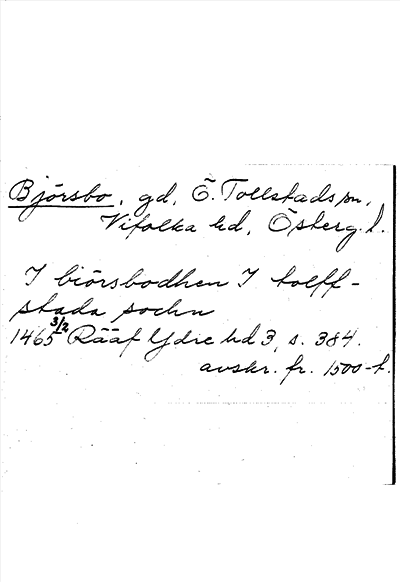 Björsbo, gd, Ö. Tollstads sn,
Vifolka hd, Österg. l.
I biörsbodhen I tolff-
stada sochn
1465 3/2 Rääf Ydre hd 3, s. 384.
avskr. fr. 1500-t.